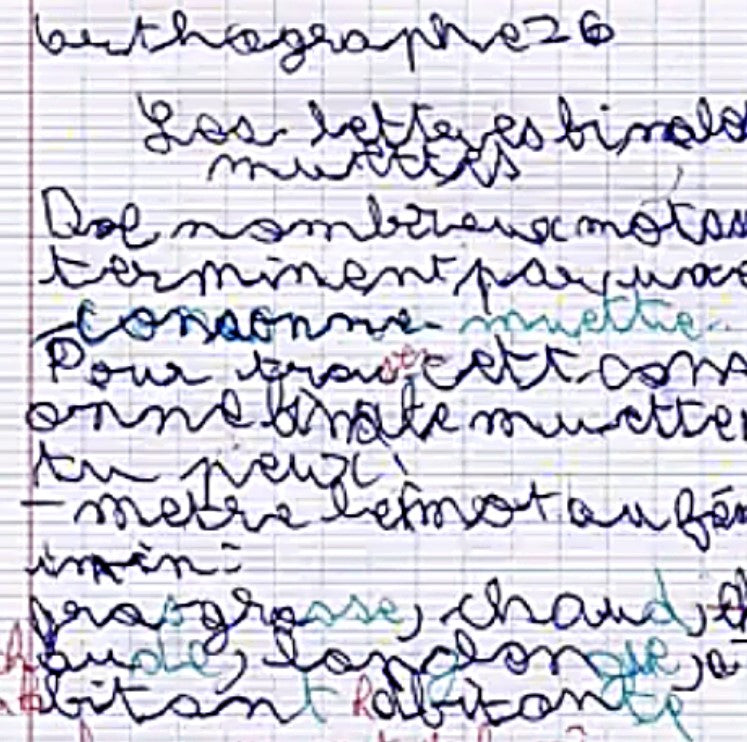 orthographe 26
Les lettres finales
muettes
De nombreux mots
terminent par une
consonne muette.
Pour trouver cett cons
onne finale muette
tu peux:
- metre le mot au fém
inin:
gros grosse, chaud, ch
aude, long longue,
bitant habitante